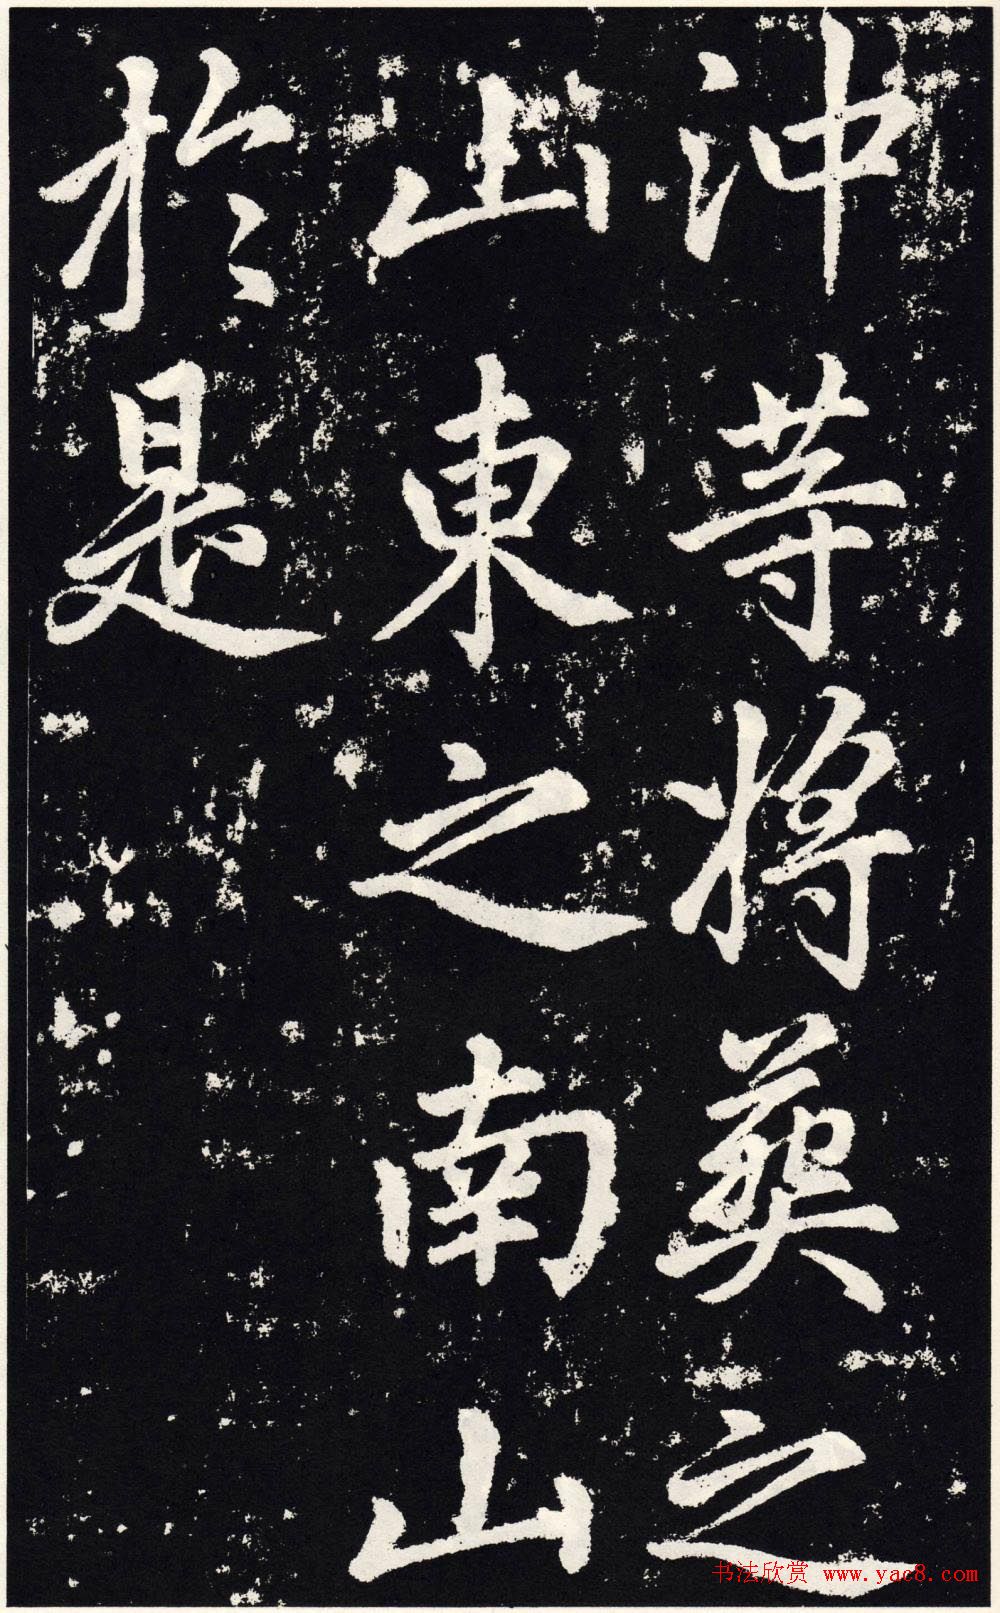 冲等將葬之
山東之南山
於是
书法欣赏 www.yac8.com